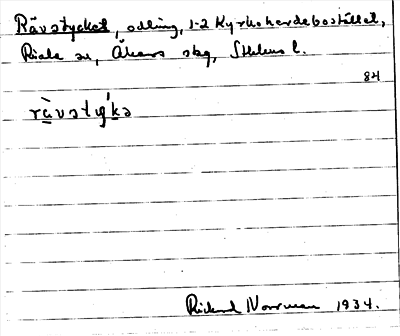 Rävstycket, odling, 1-2 Kyrkoherdebostället,
Riala sn, Åkers skg, Sthlms l.
84
rä̀vstykə
Rickard Norrman 1934.